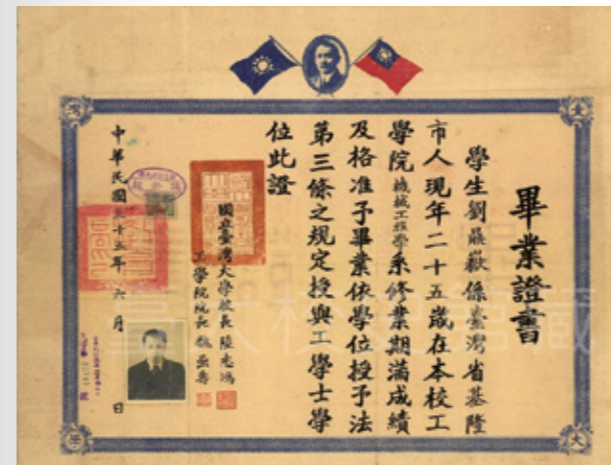 畢業證書
學生劉鼎嶽係臺灣省基隆
市人現年二十五歲在本校工
學院機械工程學系修業期滿成績
及格准予畢業依學位授予法
第三條之規定授與工學士學
位此證
國立臺灣大學校長陸志鴻
工學院院長魏嵒壽
中華民國三十五年六月 日
臺
灣
大
學